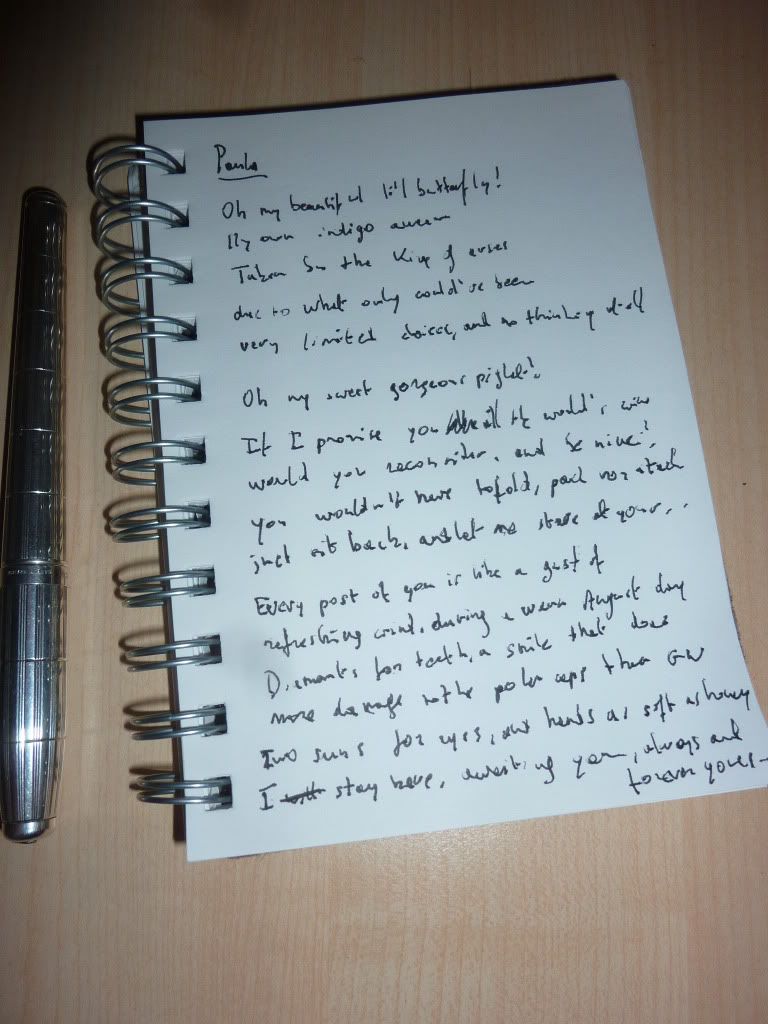 Paula
Oh my beautiful lil'l butterfly!
My own indigo
Taken by the King of
due to what only could've been
very limited choices, and no thinking at all
Oh my sweet gorgeous piglet!
If I promise you all the world's wine
would you reconsider, and be mine?
you wouldn't have to fold, pack nor stack
just sit back, and let me stare at your...
Every post of you is like a gust of
refreshing wind, during a warm August day
Diamants for teeth, a smile that does
more damage to the polar caps than GW
Two suns for eyes, and hands as soft as honey
I stay here, awaiting you, always and
forever yours